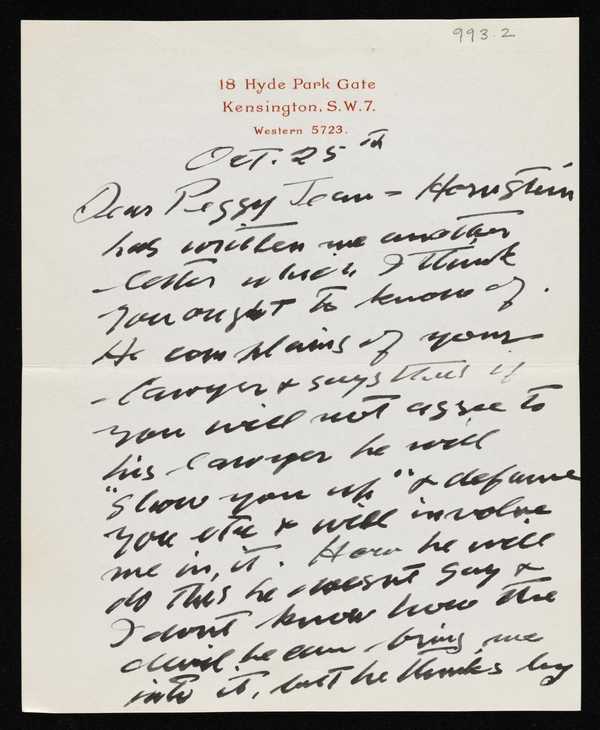 993.2
18 Hyde Park Gate
Kensington, S.W.7.
Western 5723.
Oct. 25th
Dear Peggy Jean - Hornstein
has written me another
letter which I think
you ought to know of.
He complains of your
lawyer & says that if
you will not agree to
his lawyer he will
"show you up" & defame
you etc & will involve
me in it. How he will
do this he doesnt say &
I dont know how the
devil he can bring me
into it, but he thinks by